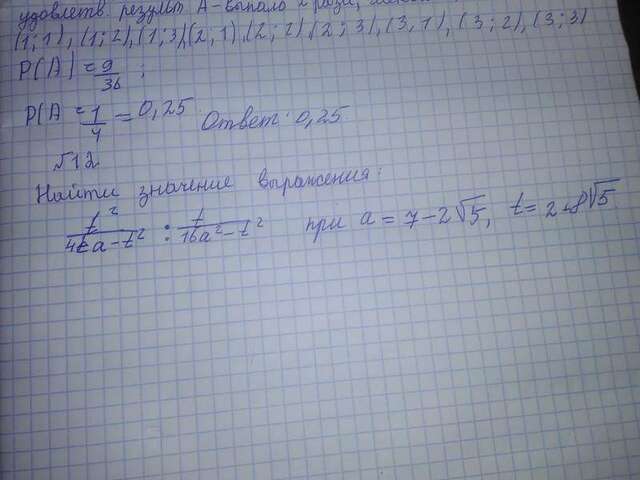 удовлетв. результ А-выпало 2 раза,
(1; 1), (1; 2), (1; 3), (2, 1), (2; 2), (2; 3), (3, 1), (3; 2), (3; 3)
P(A) = 9/36 ;
P(A = 1/4 = 0,25 Ответ: 0,25
№12
Найти значение выражения:
t²/(4ta-t²) : t/(16a²-t²) при a = 7-2√5, t = 2+8√5